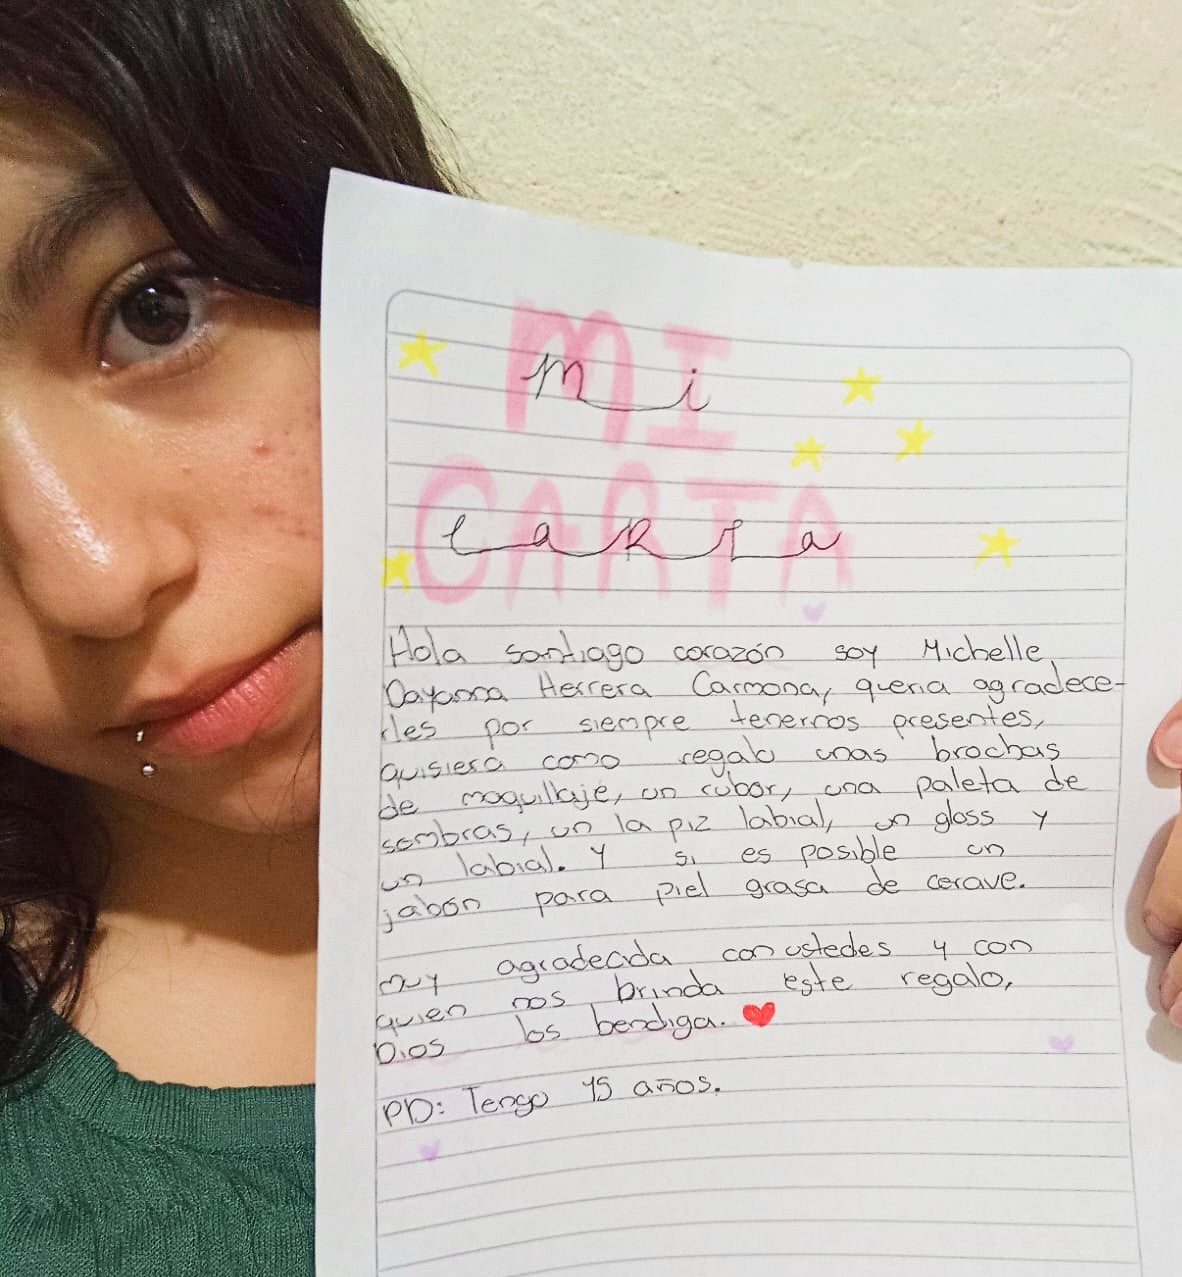 MI
mi
CARTA
carta
Hola santiago corazón soy Michelle
Dayanna Herrera Carmona, queria agradece-
rles por siempre tenernos presentes,
quisiera como regalo unas brochas
de maquillaje, un rubor, una paleta de
sombras, un la piz labial, un gloss y
un labial. Y si es posible un
jabón para piel grasa de cerave.
muy agradecida con ustedes y con
quien nos brinda este regalo,
Dios los bendiga.
PD: Tengo 15 años.